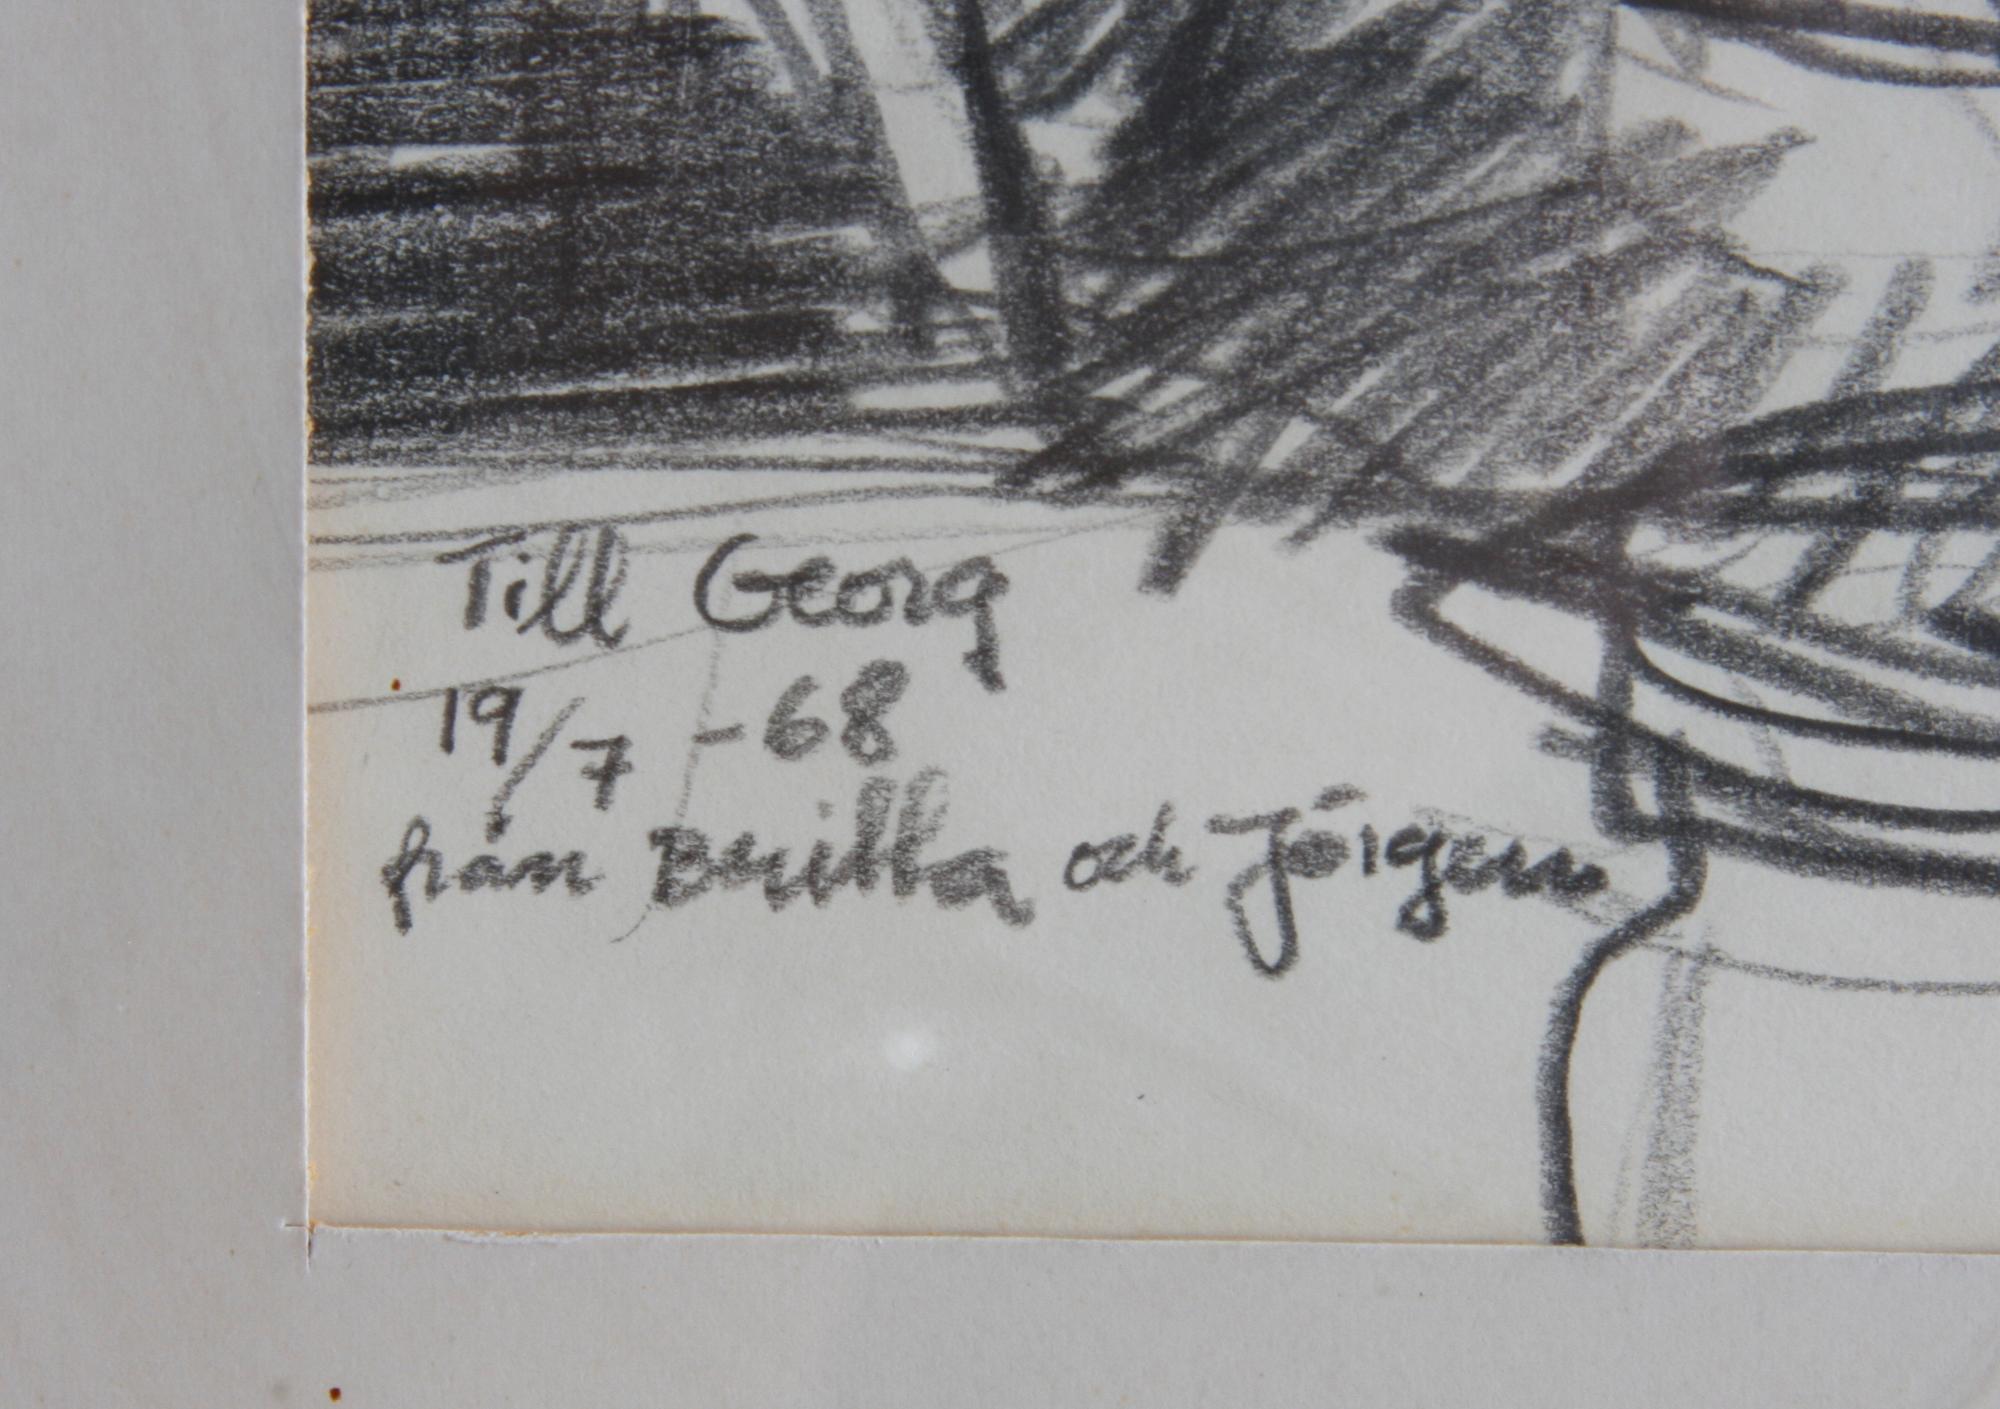 Till Georg
19/7 -68
från Britta och Jörgen